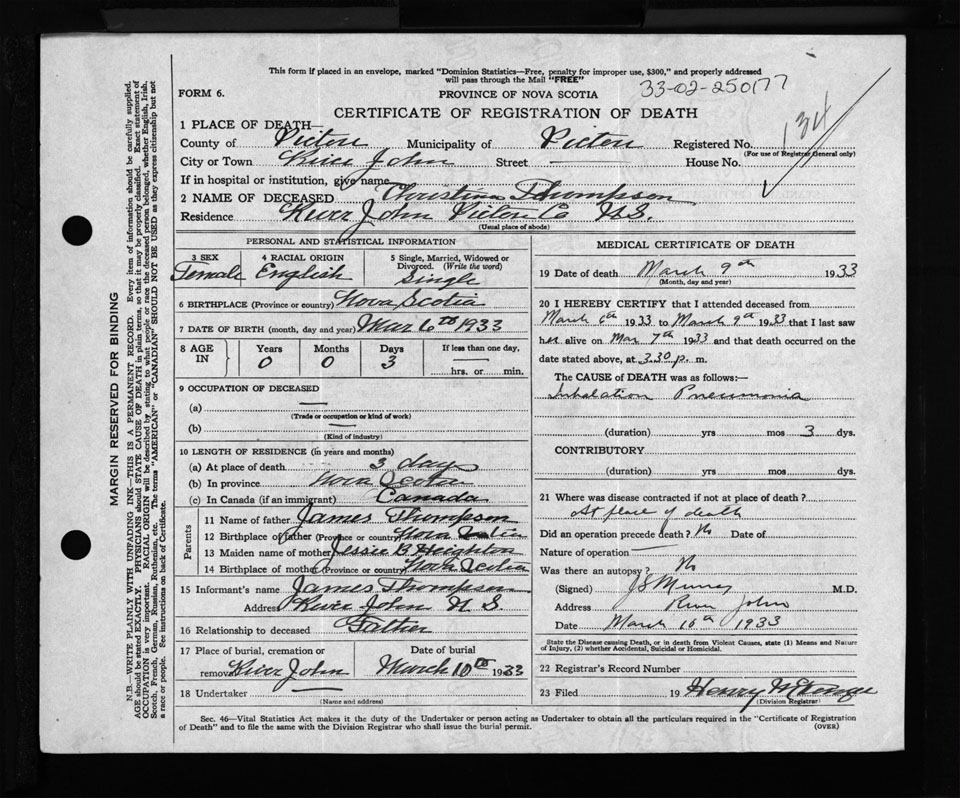 This form if placed in an envelope, marked "Dominion Statistics—Free, penalty for improper use, $300," and properly addressed
will pass through the Mail "FREE"
33-02-250177
FORM 6.
PROVINCE OF NOVA SCOTIA
CERTIFICATE OF REGISTRATION OF DEATH
134
1 PLACE OF DEATH—
County of Pictou Municipality of Pictou Registered No.
(For use of Registrar General only)
City or Town River John Street — House No.
If in hospital or institution, give name
2 NAME OF DECEASED Christina Thompson
Residence River John Pictou Co N.S.
(Usual place of abode)
PERSONAL AND STATISTICAL INFORMATION
3 SEX 4 RACIAL ORIGIN 5 Single, Married, Widowed or
Divorced. (Write the word)
Female English Single
6 BIRTHPLACE (Province or country) Nova Scotia
7 DATE OF BIRTH (month, day and year) Mar 6th 1933
8 AGE IN Years Months Days If less than one day,
0 0 3 hrs. or min.
9 OCCUPATION OF DECEASED
(a) —
(Trade or occupation or kind of work)
(b) —
(Kind of industry)
10 LENGTH OF RESIDENCE (in years and months)
(a) At place of death 3 days
(b) In province Nova Scotia
(c) In Canada (if an immigrant) Canada
Parents
11 Name of father James Thompson
12 Birthplace of father (Province or country) Nova Scotia
13 Maiden name of mother Jessie B Heighton
14 Birthplace of mother (Province or country) Nova Scotia
15 Informant's name James Thompson
Address River John N S
16 Relationship to deceased Father
17 Place of burial, cremation or Date of burial
removal River John March 10th 1933
18 Undertaker —
(Name and address)
MEDICAL CERTIFICATE OF DEATH
19 Date of death March 9th 1933
(Month, day and year)
20 I HEREBY CERTIFY that I attended deceased from
March 6th 1933 to March 9th 1933 that I last saw
her alive on Mar 7th 1933 and that death occurred on the
date stated above, at 3.30 p. m.
The CAUSE of DEATH was as follows:—
Inhalation Pneumonia
(duration) yrs mos 3 dys.
CONTRIBUTORY
(duration) yrs mos dys.
21 Where was disease contracted if not at place of death?
At place of death
Did an operation precede death? No Date of
Nature of operation —
Was there an autopsy? No
(Signed) J S Murray M.D.
Address River John
Date March 16th 1933
State the Disease causing Death, or in death from Violent Causes, state (1) Means and Nature
of Injury, (2) whether Accidental, Suicidal or Homicidal.
22 Registrar's Record Number
23 Filed 19 Henry
(Division Registrar)
Sec. 46—Vital Statistics Act makes it the duty of the Undertaker or person acting as Undertaker to obtain all the particulars required in the "Certificate of Registration
of Death" and to file the same with the Division Registrar who shall issue the burial permit.
(OVER)
MARGIN RESERVED FOR BINDING
N.B.—WRITE PLAINLY WITH UNFADING INK—THIS IS A PERMANENT RECORD. Every item of information should be carefully supplied.
AGE should be stated EXACTLY. PHYSICIANS should STATE CAUSE OF DEATH in plain terms, so that it may be properly classified. Exact statement of
OCCUPATION is very important. RACIAL ORIGIN will be described by stating to what people or race the deceased person belonged, whether English, Irish,
Scotch, French, German, Russian, Ruthenian, etc. The terms "AMERICAN" or "CANADIAN" SHOULD NOT BE USED as they express citizenship but not
a race or people. See instructions on back of Certificate.